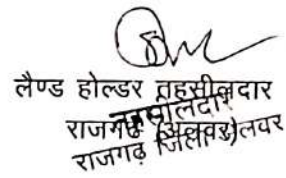 लैण्ड होल्डर तहसीलदार
तहसीलदार
राजगढ़ (अलवर)
राजगढ़ जिला अलवर